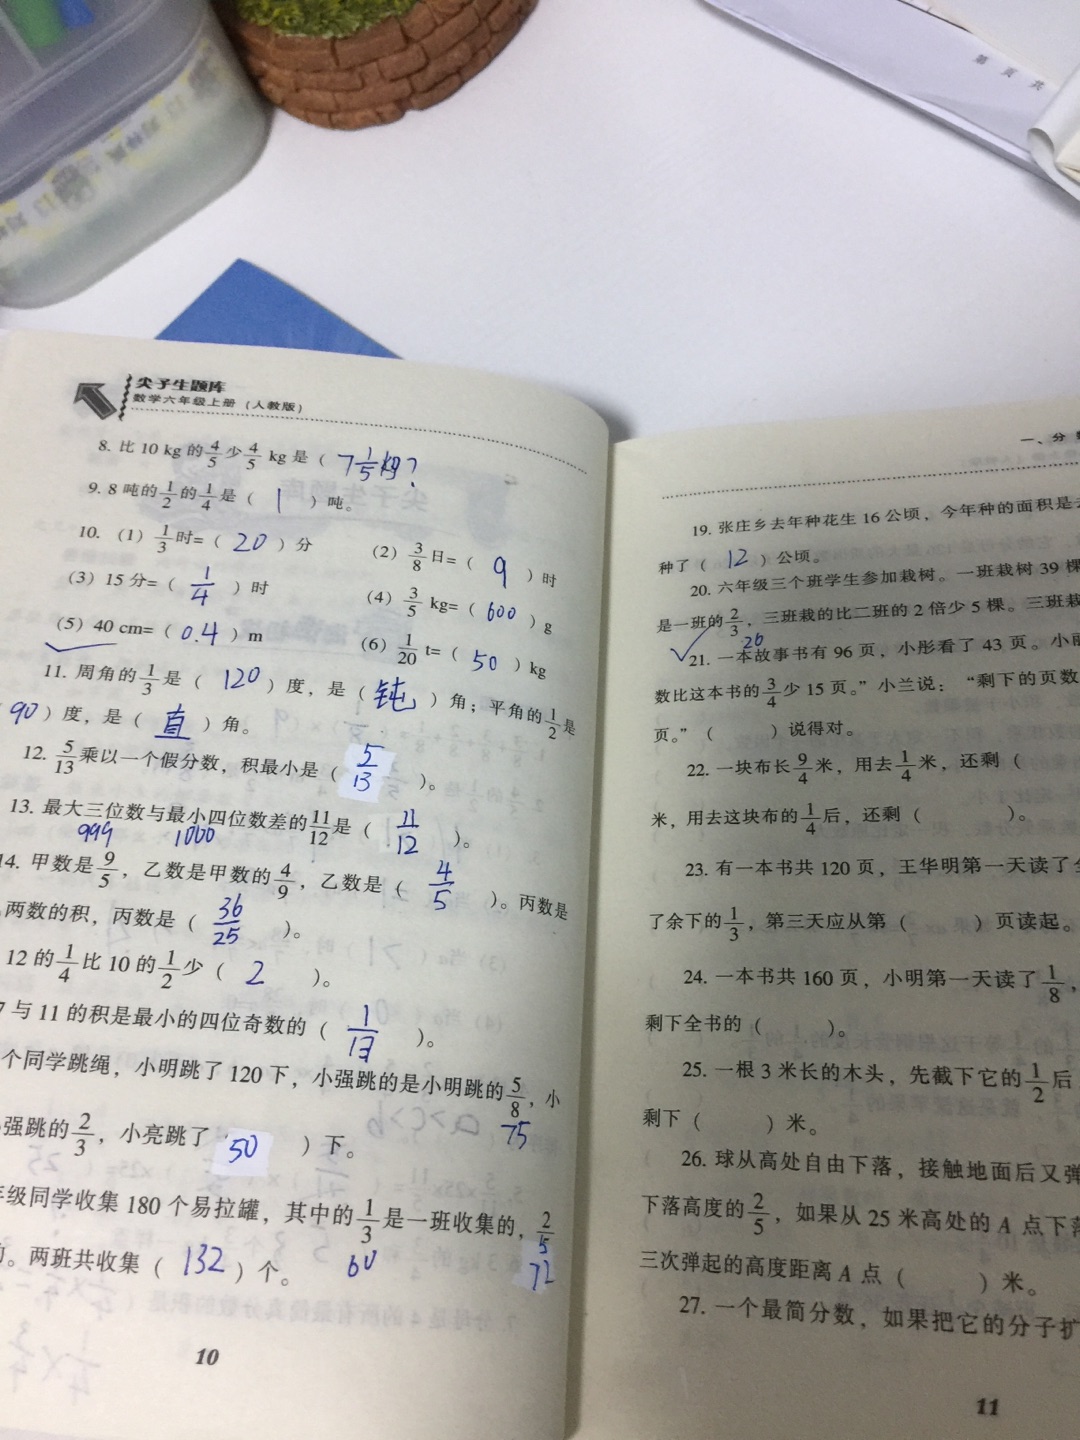 第 页 共
尖子生题库
数学六年级上册（人教版）
8. 比 10 kg 的4/5少4/5 kg 是（ 7 1/5 kg ?
9. 8 吨的1/2的1/4是（ 1 ）吨。
10. （1）1/3时=（ 20 ）分
（2）3/8日=（ 9 ）时
（3）15 分=（ 1/4 ）时
（4）3/5 kg=（ 600 ）g
（5）40 cm=（ 0.4 ）m
（6）1/20 t=（ 50 ）kg
11. 周角的1/3是（ 120 ）度，是（ 钝 ）角；平角的1/2是
90）度，是（ 直 ）角。
12. 5/13乘以一个假分数，积最小是（ 5/13 ）。
13. 最大三位数与最小四位数差的11/12是（ 11/12 ）。
999 1000
14. 甲数是9/5，乙数是甲数的4/9，乙数是（ 4/5 ）。丙数是
两数的积，丙数是（ 36/25 ）。
12 的1/4比 10 的1/2少（ 2 ）。
7 与 11 的积是最小的四位奇数的（ 1/13 ）。
个同学跳绳，小明跳了 120 下，小强跳的是小明跳的5/8，小
75
强跳的2/3，小亮跳了 50 ）下。
年级同学收集 180 个易拉罐，其中的1/3是一班收集的，2/5
的。两班共收集（ 132 ）个。 60 72
10
一、分
19. 张庄乡去年种花生 16 公顷，今年种的面积是去
种了（ 12 ）公顷。
20. 六年级三个班学生参加栽树。一班栽树 39 棵
是一班的2/3，三班栽的比二班的 2 倍少 5 棵。三班栽
26
21. 一本故事书有 96 页，小彤看了 43 页。小丽
数比这本书的3/4少 15 页。”小兰说：“剩下的页数
页。”（ ）说得对。
22. 一块布长9/4米，用去1/4米，还剩（
米，用去这块布的1/4后，还剩（ ）。
23. 有一本书共 120 页，王华明第一天读了全
了余下的1/3，第三天应从第（ ）页读起。
24. 一本书共 160 页，小明第一天读了1/8，
剩下全书的（ ）。
25. 一根 3 米长的木头，先截下它的1/2后
剩下（ ）米。
26. 球从高处自由下落，接触地面后又弹
下落高度的2/5，如果从 25 米高处的 A 点下落
三次弹起的高度距离 A 点（ ）米。
27. 一个最简分数，如果把它的分子扩
11